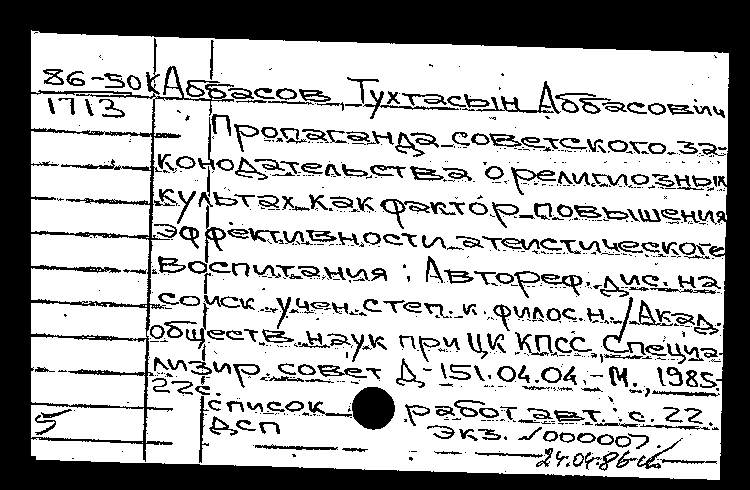 86-50К Аббасов, Тухтасын Аббасович
1713
Пропаганда советского за-
конодательства о религиозных
культах как фактор повышения
эффективности атеистического
воспитания : Автореф. дис. на
соиск. учен. степ. к. филос. н. / Акад.
обществ. наук при ЦК КПСС, Специа-
лизир. совет Д-151.04.04. - М., 1985.-
22с.
список работ авт.: с. 22.
5 ДСП экз. №000007.
24.04.86